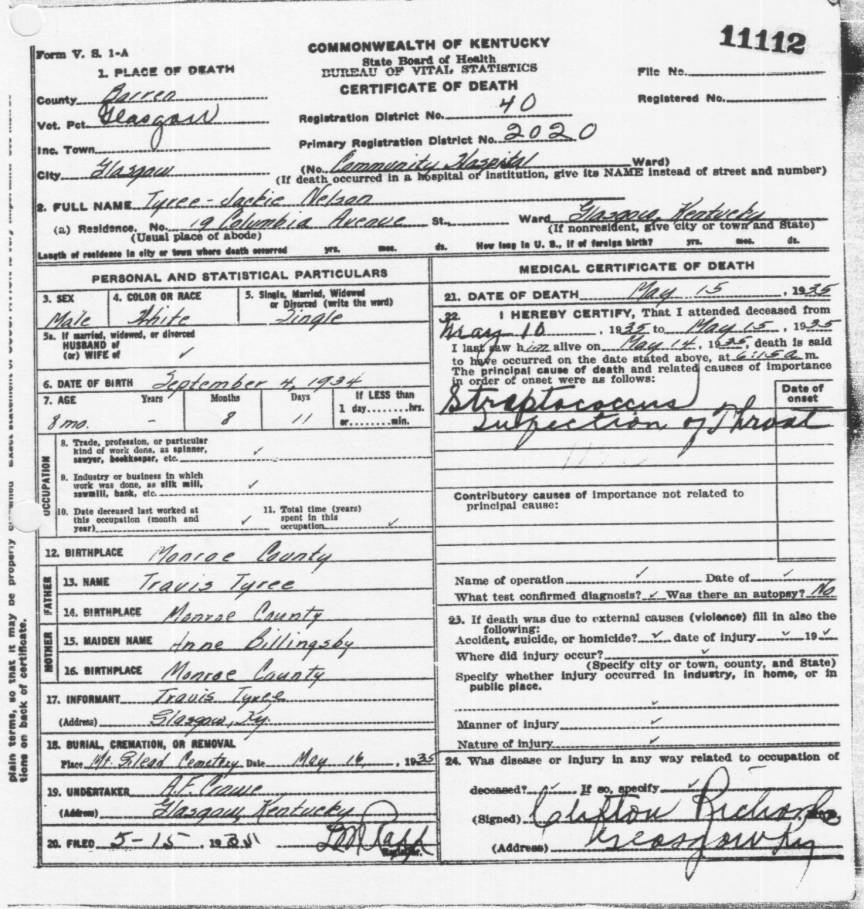 11112
Form V. S. 1-A
COMMONWEALTH OF KENTUCKY
State Board of Health
BUREAU OF VITAL STATISTICS
CERTIFICATE OF DEATH
File No.
Registered No.
1. PLACE OF DEATH
County Barren
Vot. Pct. Glasgow
Inc. Town
City Glasgow
Registration District No. 40
Primary Registration District No. 2020
(No. Community Hospital Ward)
(If death occurred in a hospital or institution, give its NAME instead of street and number)
2. FULL NAME Tyree - Jackie Nelson
(a) Residence. No. 19 Columbia Avenue St., Ward Glasgow, Kentucky
(Usual place of abode) (If nonresident, give city or town and State)
Length of residence in city or town where death occurred yrs. mos. ds. How long in U. S., if of foreign birth? yrs. mos. ds.
PERSONAL AND STATISTICAL PARTICULARS
3. SEX 4. COLOR OR RACE 5. Single, Married, Widowed or Divorced (write the word)
Male White Single
5a. If married, widowed, or divorced
HUSBAND of
(or) WIFE of ✓
6. DATE OF BIRTH September 4, 1934
7. AGE Years Months Days If LESS than
1 day........hrs.
8 mo. - 8 11 or........min.
OCCUPATION
8. Trade, profession, or particular
kind of work done, as spinner,
sawyer, bookkeeper, etc. ✓
9. Industry or business in which
work was done, as silk mill,
sawmill, bank, etc. ✓
10. Date deceased last worked at
this occupation (month and
year) ✓
11. Total time (years)
spent in this
occupation ✓
12. BIRTHPLACE Monroe County
FATHER
13. NAME Travis Tyree
14. BIRTHPLACE Monroe County
MOTHER
15. MAIDEN NAME Anne Billingsby
16. BIRTHPLACE Monroe County
17. INFORMANT Travis Tyree
(Address) Glasgow, Ky.
18. BURIAL, CREMATION, OR REMOVAL
Place Mt. Gilead Cemetery Date May 16, 1935
19. UNDERTAKER A.F. Crowe
(Address) Glasgow, Kentucky
20. FILED 5-15 193
Registrar.
MEDICAL CERTIFICATE OF DEATH
21. DATE OF DEATH May 15, 1935
22. I HEREBY CERTIFY, That I attended deceased from
May 10, 1935 to May 15, 1935
I last saw him alive on May 14, 1935, death is said
to have occurred on the date stated above, at 6:15 a m.
The principal cause of death and related causes of importance
in order of onset were as follows:
Date of
onset
Streptococcus
Infection of Throat
Contributory causes of importance not related to
principal cause:
Name of operation ✓ Date of ✓
What test confirmed diagnosis? ✓ Was there an autopsy? No
23. If death was due to external causes (violence) fill in also the
following:
Accident, suicide, or homicide? ✓ date of injury ✓ 19 ✓
Where did injury occur? ✓
(Specify city or town, county, and State)
Specify whether injury occurred in industry, in home, or in
public place.
✓
Manner of injury ✓
Nature of injury ✓
24. Was disease or injury in any way related to occupation of
deceased? ✓ If so, specify ✓
(Signed) Clifton Richards
(Address) Glasgow Ky
plain terms, so that it may be properly
tions on back of certificate.